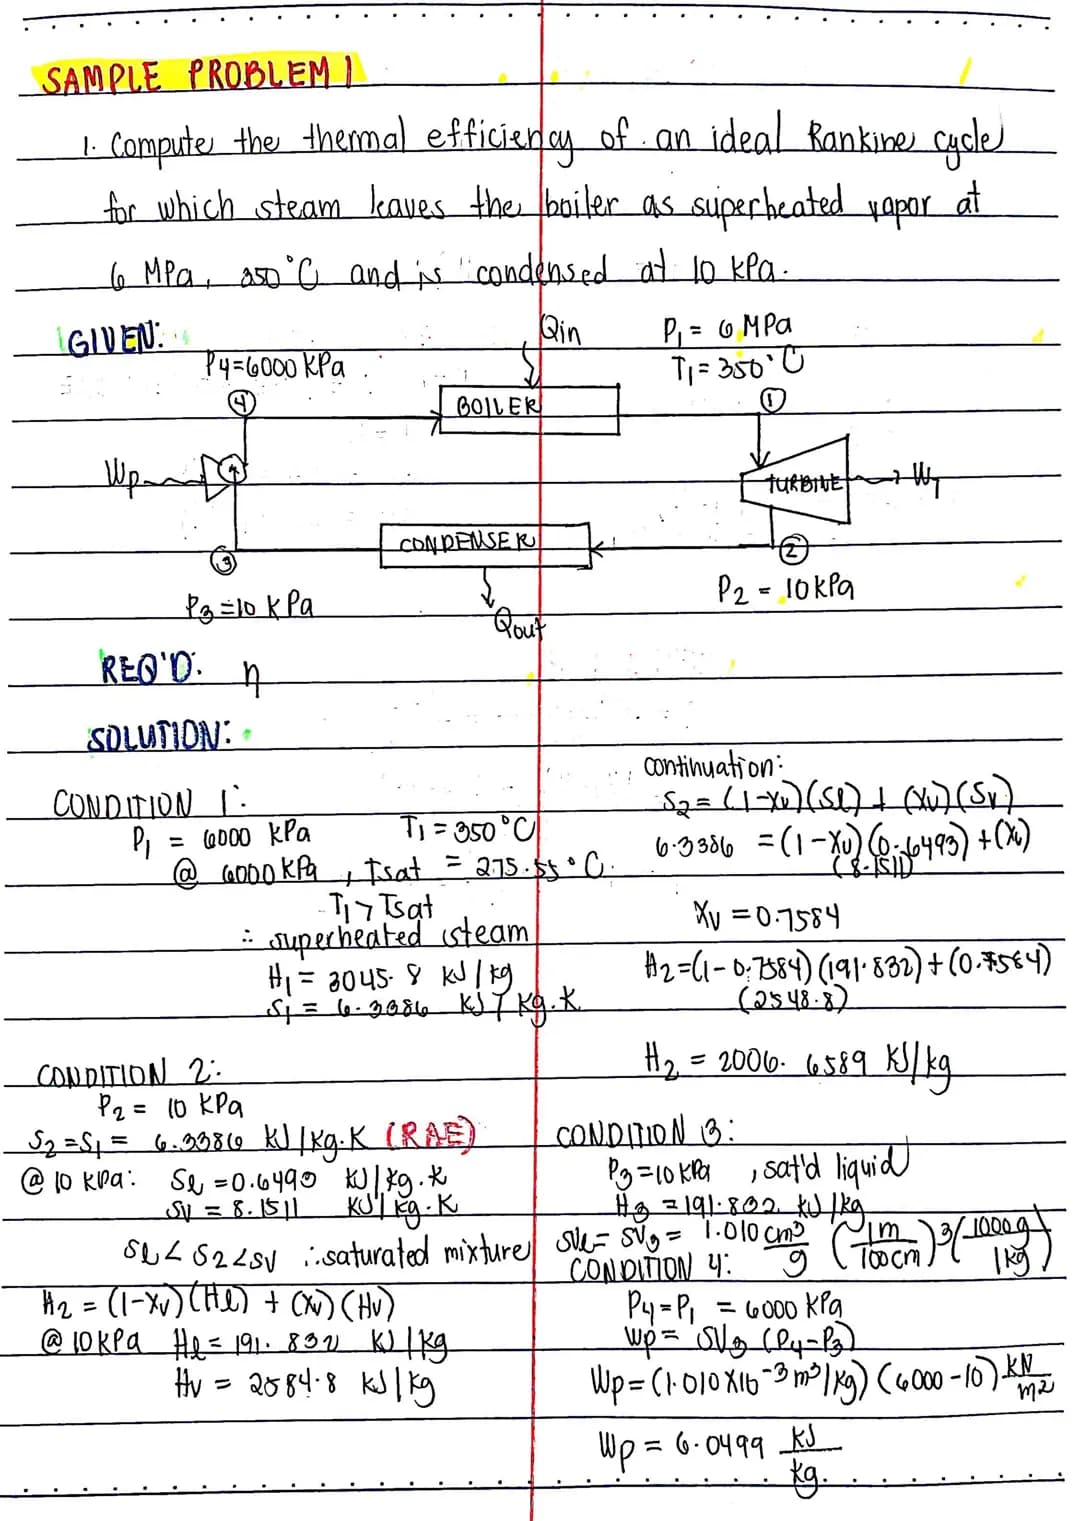 SAMPLE PROBLEM 1
1. Compute the thermal efficiency of an ideal Rankine cycle
for which steam leaves the boiler as superheated vapor at
6 MPa, 350°C and is condensed at 10 kPa.
GIVEN:
Qin
P1 = 6 MPa
P4=6000 KPa
T1 = 350°C
4
BOILER
1
Wp
TURBINE
WT
CONDENSER
3
2
P3=10 KPa
P2 = 10KPa
Qout
REQ'D: η
SOLUTION:
CONDITION 1:
P1 = 6000 KPa T1 = 350°C
@ 6000 KPa, Tsat = 275.55°C
T1 > Tsat
∴ superheated steam
H1 = 3045.8 KJ/kg
S1 = 6.3386 KJ/kg.K
CONDITION 2:
P2 = 10 KPa
S2=S1 = 6.3386 KJ/kg.K (RAE)
@ 10 KPa: Sl = 0.6493 KJ/kg.K
Sv = 8.1511 KJ/kg.K
Sl < S2 < Sv ∴ saturated mixture
H2 = (1-Xv)(Hl) + (Xv)(Hv)
@ 10KPa Hl = 191.832 KJ/kg
Hv = 2584.8 KJ/kg
continuation:
S2 = (1-Xv)(Sl) + (Xv)(Sv)
6.3386 = (1-Xv)(0.6493)+(Xv)
(8.1511)
Xv = 0.7584
H2=(1-0.7584)(191.832)+(0.7584)
(2548.8)
H2 = 2006.6589 KJ/kg
CONDITION 3:
P3=10KPa , sat'd liquid
H3 = 191.832 KJ/kg
SVl = SV3 = 1.010 cm³/g (1m/100cm)³(1000g/1kg)
CONDITION 4:
P4=P1 = 6000 KPa
Wp = SV3 (P4-P3)
Wp = (1.010x10-3 m³/kg)(6000-10) kN/m2
Wp = 6.0499 KJ/kg.